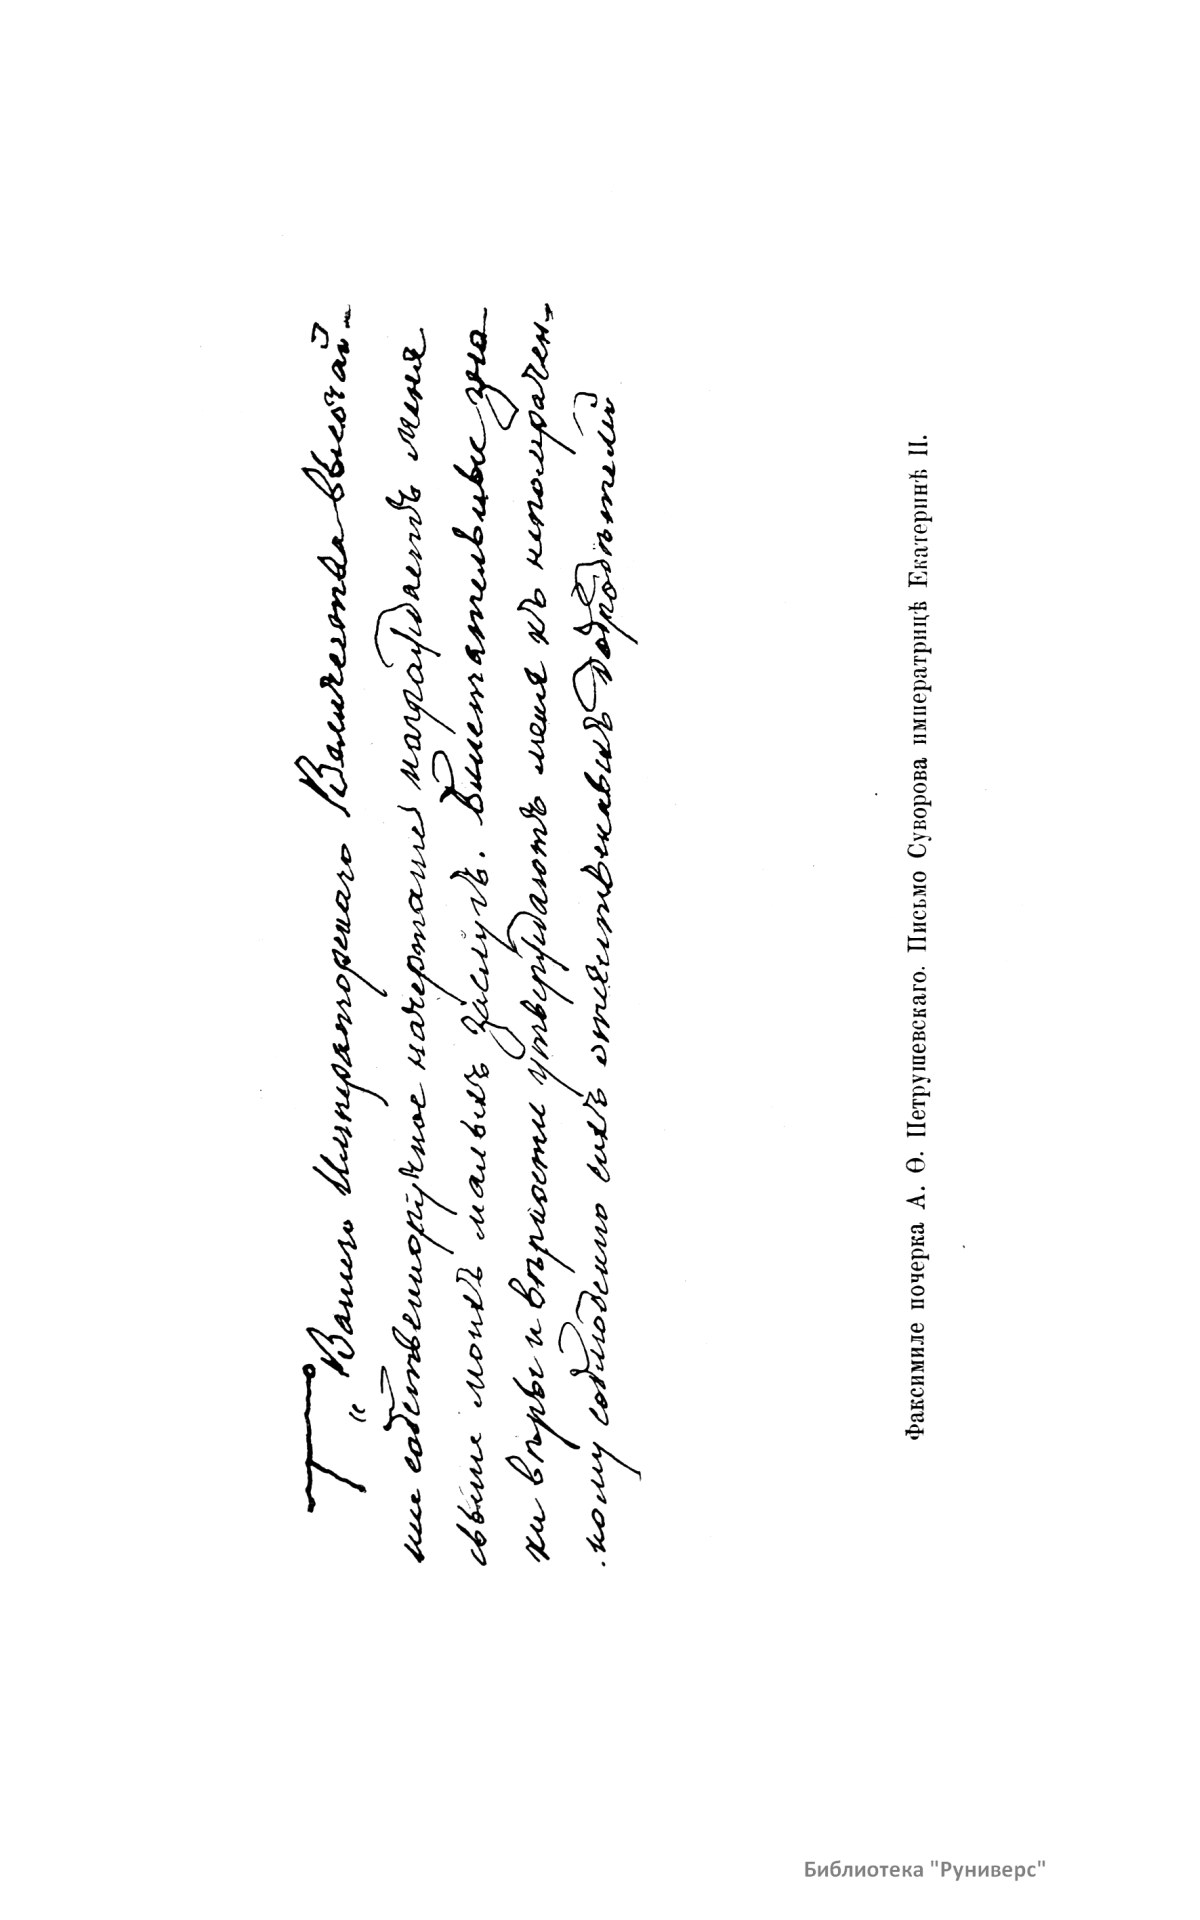 "Вашего Императорскаго Величества Высочай-
шее собственноручное начертание награждаетъ меня
свыше моихъ малыхъ заслугъ. Блистательные зна-
ки веры и верности утверждаютъ меня къ непомрачен-
ному соблюдению сихъ отечественныхъ добродетелей
Факсимиле почерка А. Ѳ. Петрушевскаго. Письмо Суворова императрицѣ Екатеринѣ II.
Библиотека "Руниверс"